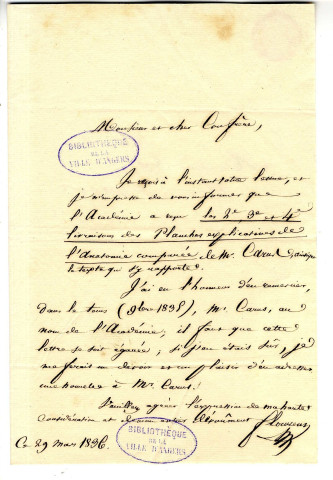 Monsieur et cher Confrère,
BIBLIOTHÈQUE
DE LA
VILLE D'ANGERS
Je reçois à l'instant votre lettre, et
je m'empresse de vous informer que
l'Académie a reçu les 2e 3e et 4e
livraisons des Planches explicatives de
l'anatomie comparée de Mr. Carus, ainsi que
le texte qui s'y rapporte.
J'ai eu l'honneur d'en remercier,
dans le tems (9bre 1835), Mr. Carus, au
nom de l'Académie; il faut que cette
lettre se soit égarée; si j'en étais sûr, je
me ferais un devoir et un plaisir d'en adresser
une nouvelle à Mr Carus.
Veuillez agréer l'expression de ma haute
considération et de mon entier dévouement
Flourens
Ce 29 mars 1836.
BIBLIOTHÈQUE
DE LA
VILLE D'ANGERS